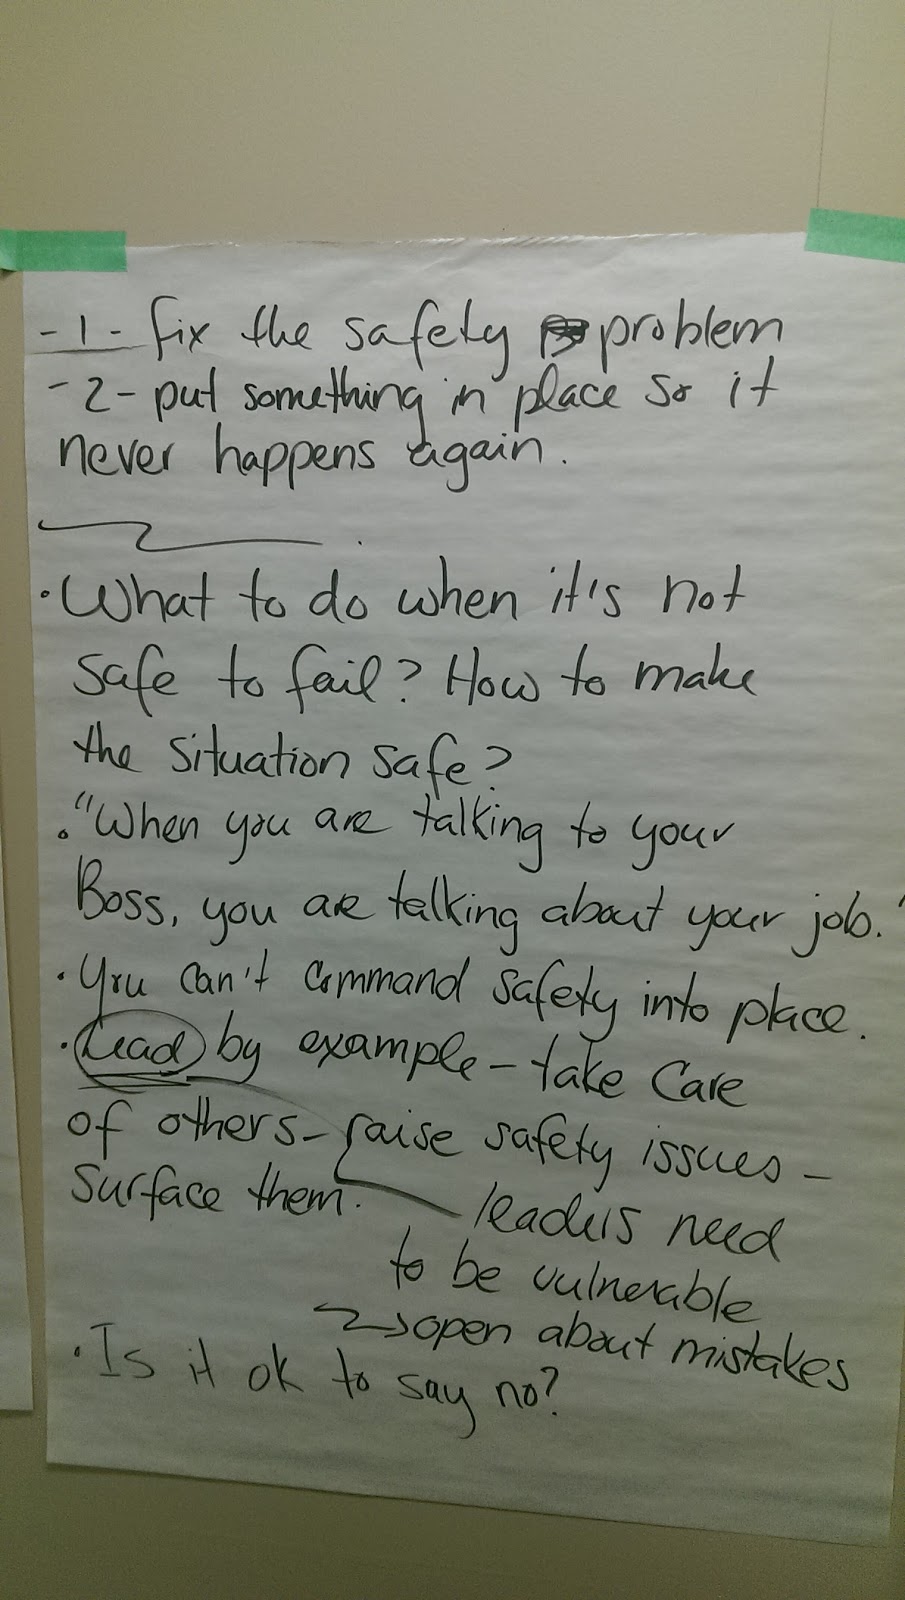 -1- fix the safety problem
-2- put something in place so it
never happens again.
• What to do when it's not
safe to fail? How to make
the situation safe?
• "When you are talking to your
Boss, you are talking about your job."
• You can't command safety into place.
• Lead by example - take care
of others - raise safety issues -
surface them.
leaders need
to be vulnerable
→ open about mistakes
• Is it ok to say no?